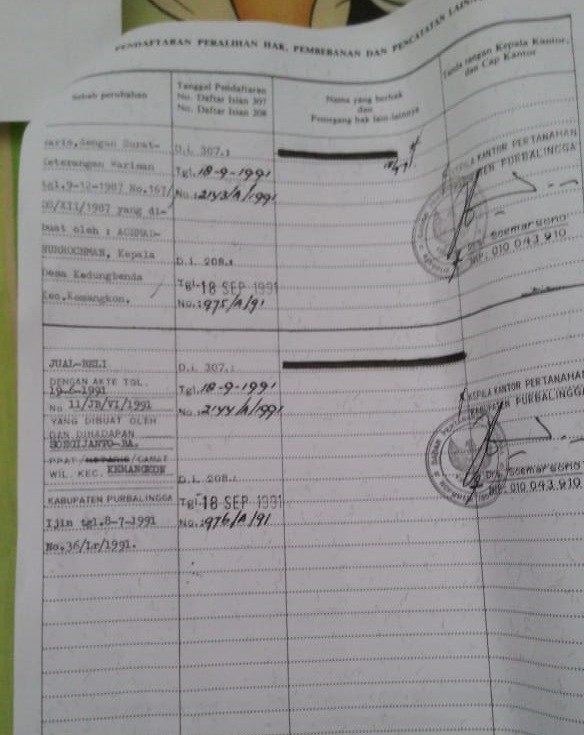 PENDAFTARAN PERALIHAN HAK, PEMBEBANAN DAN PENCATATAN LAIN
Sebab perubahan
Tanggal Pendaftaran
No. Daftar Isian 307
No. Daftar Isian 208
Nama yang berhak
dan
Pemegang hak lain-lainnya
Tanda tangan Kepala Kantor,
dan Cap Kantor
Waris,dengan Surat-
Keterangan Warisan
tgl.9-12-1987 No.167/
/XII/1987 yang di-
buat oleh : ACHMAD-
NURROCHMAN, Kepala
Desa Kedungbenda
Kec.Kemangkon.
D.i. 307.:
Tgl. 18-9-1991
No.: 2143/A/1991
D.i. 208.:
Tgl. 18 SEP 1991
No.: 975/A/91
KEPALA KANTOR PERTANAHAN
PURBALINGGA
Drs. Soemarsono
NIP. 010 043 910
JUAL-BELI
DENGAN AKTE TGL.
19-6-1991
No 11/JB/VI/1991
YANG DIBUAT OLEH
DAN DIHADAPAN
PPAT/NOTARIS/CAMAT
WIL. KEC. KEMANGKON
KABUPATEN PURBALINGGA
Ijin tgl.8-7-1991
No.36/Lr/1991.
D.i. 307.:
Tgl. 18-9-1991
No.: 2144/A/1991
D.i. 208.:
Tgl. 18 SEP 1991
No.: 976/A/91
KEPALA KANTOR PERTANAHAN
KABUPATEN PURBALINGGA
Drs. Soemarsono
NIP. 010 043 910